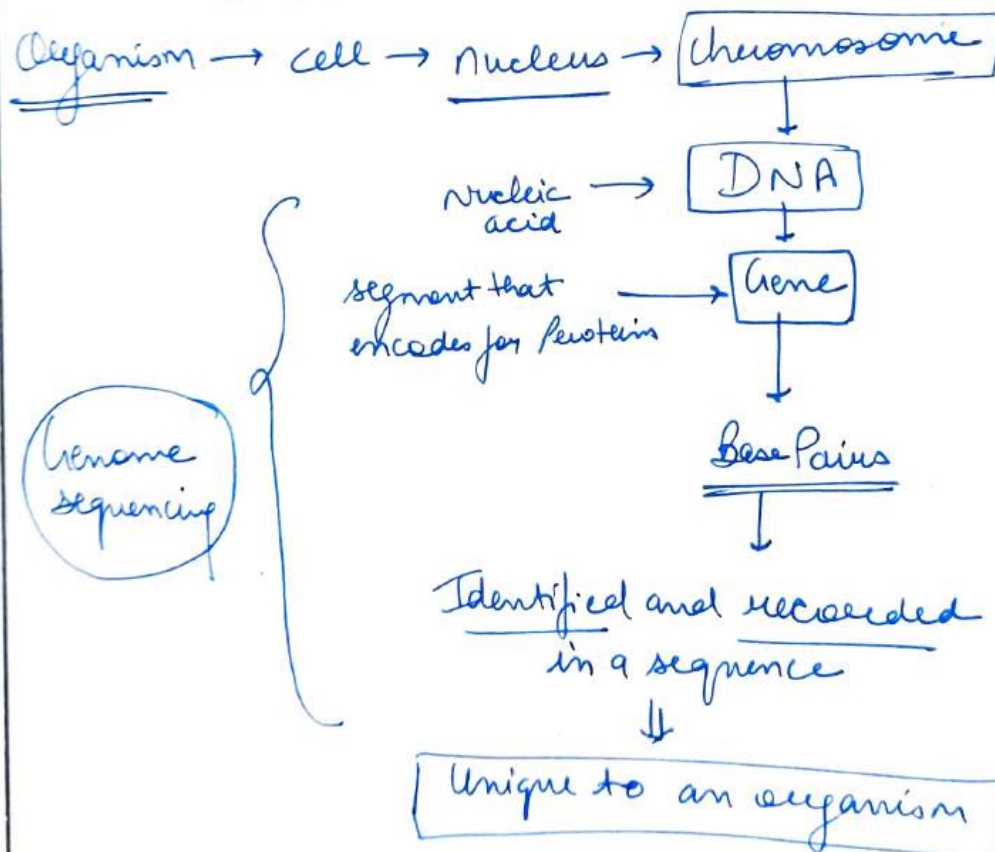 Organism → cell → nucleus → Chromosome
DNA
nucleic
acid
Gene
segment that
encodes for Proteins
Genome
sequencing
Base Pairs
Identified and recorded
in a sequence
Unique to an organism